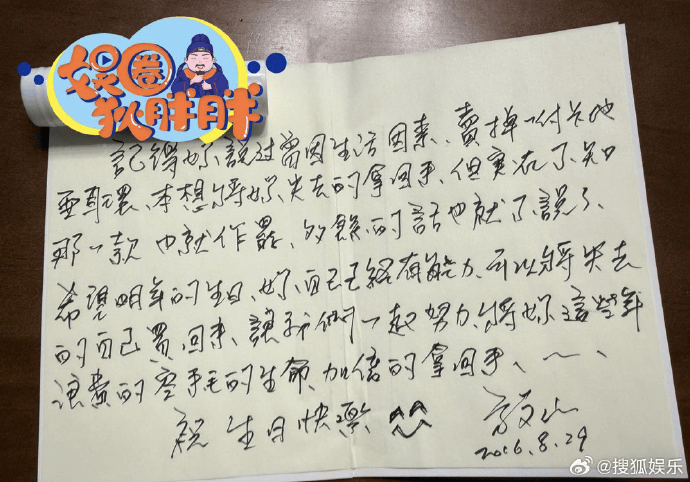 娱圈
狄胖胖
記得妳說過曾因生活因素、賣掉一付卡地
亞耳環、本想將妳失去的拿回來、但實在不知
那一款 也就作罷、多餘的話也就不說了、
希望明年的生日、妳自己已經有能力、可以將失去
的自己買回來、讓我們一起努力、將妳這些年
浪費的 的生命、加倍的拿回來、
祝 生日快樂
2016.8.29
@搜狐娱乐